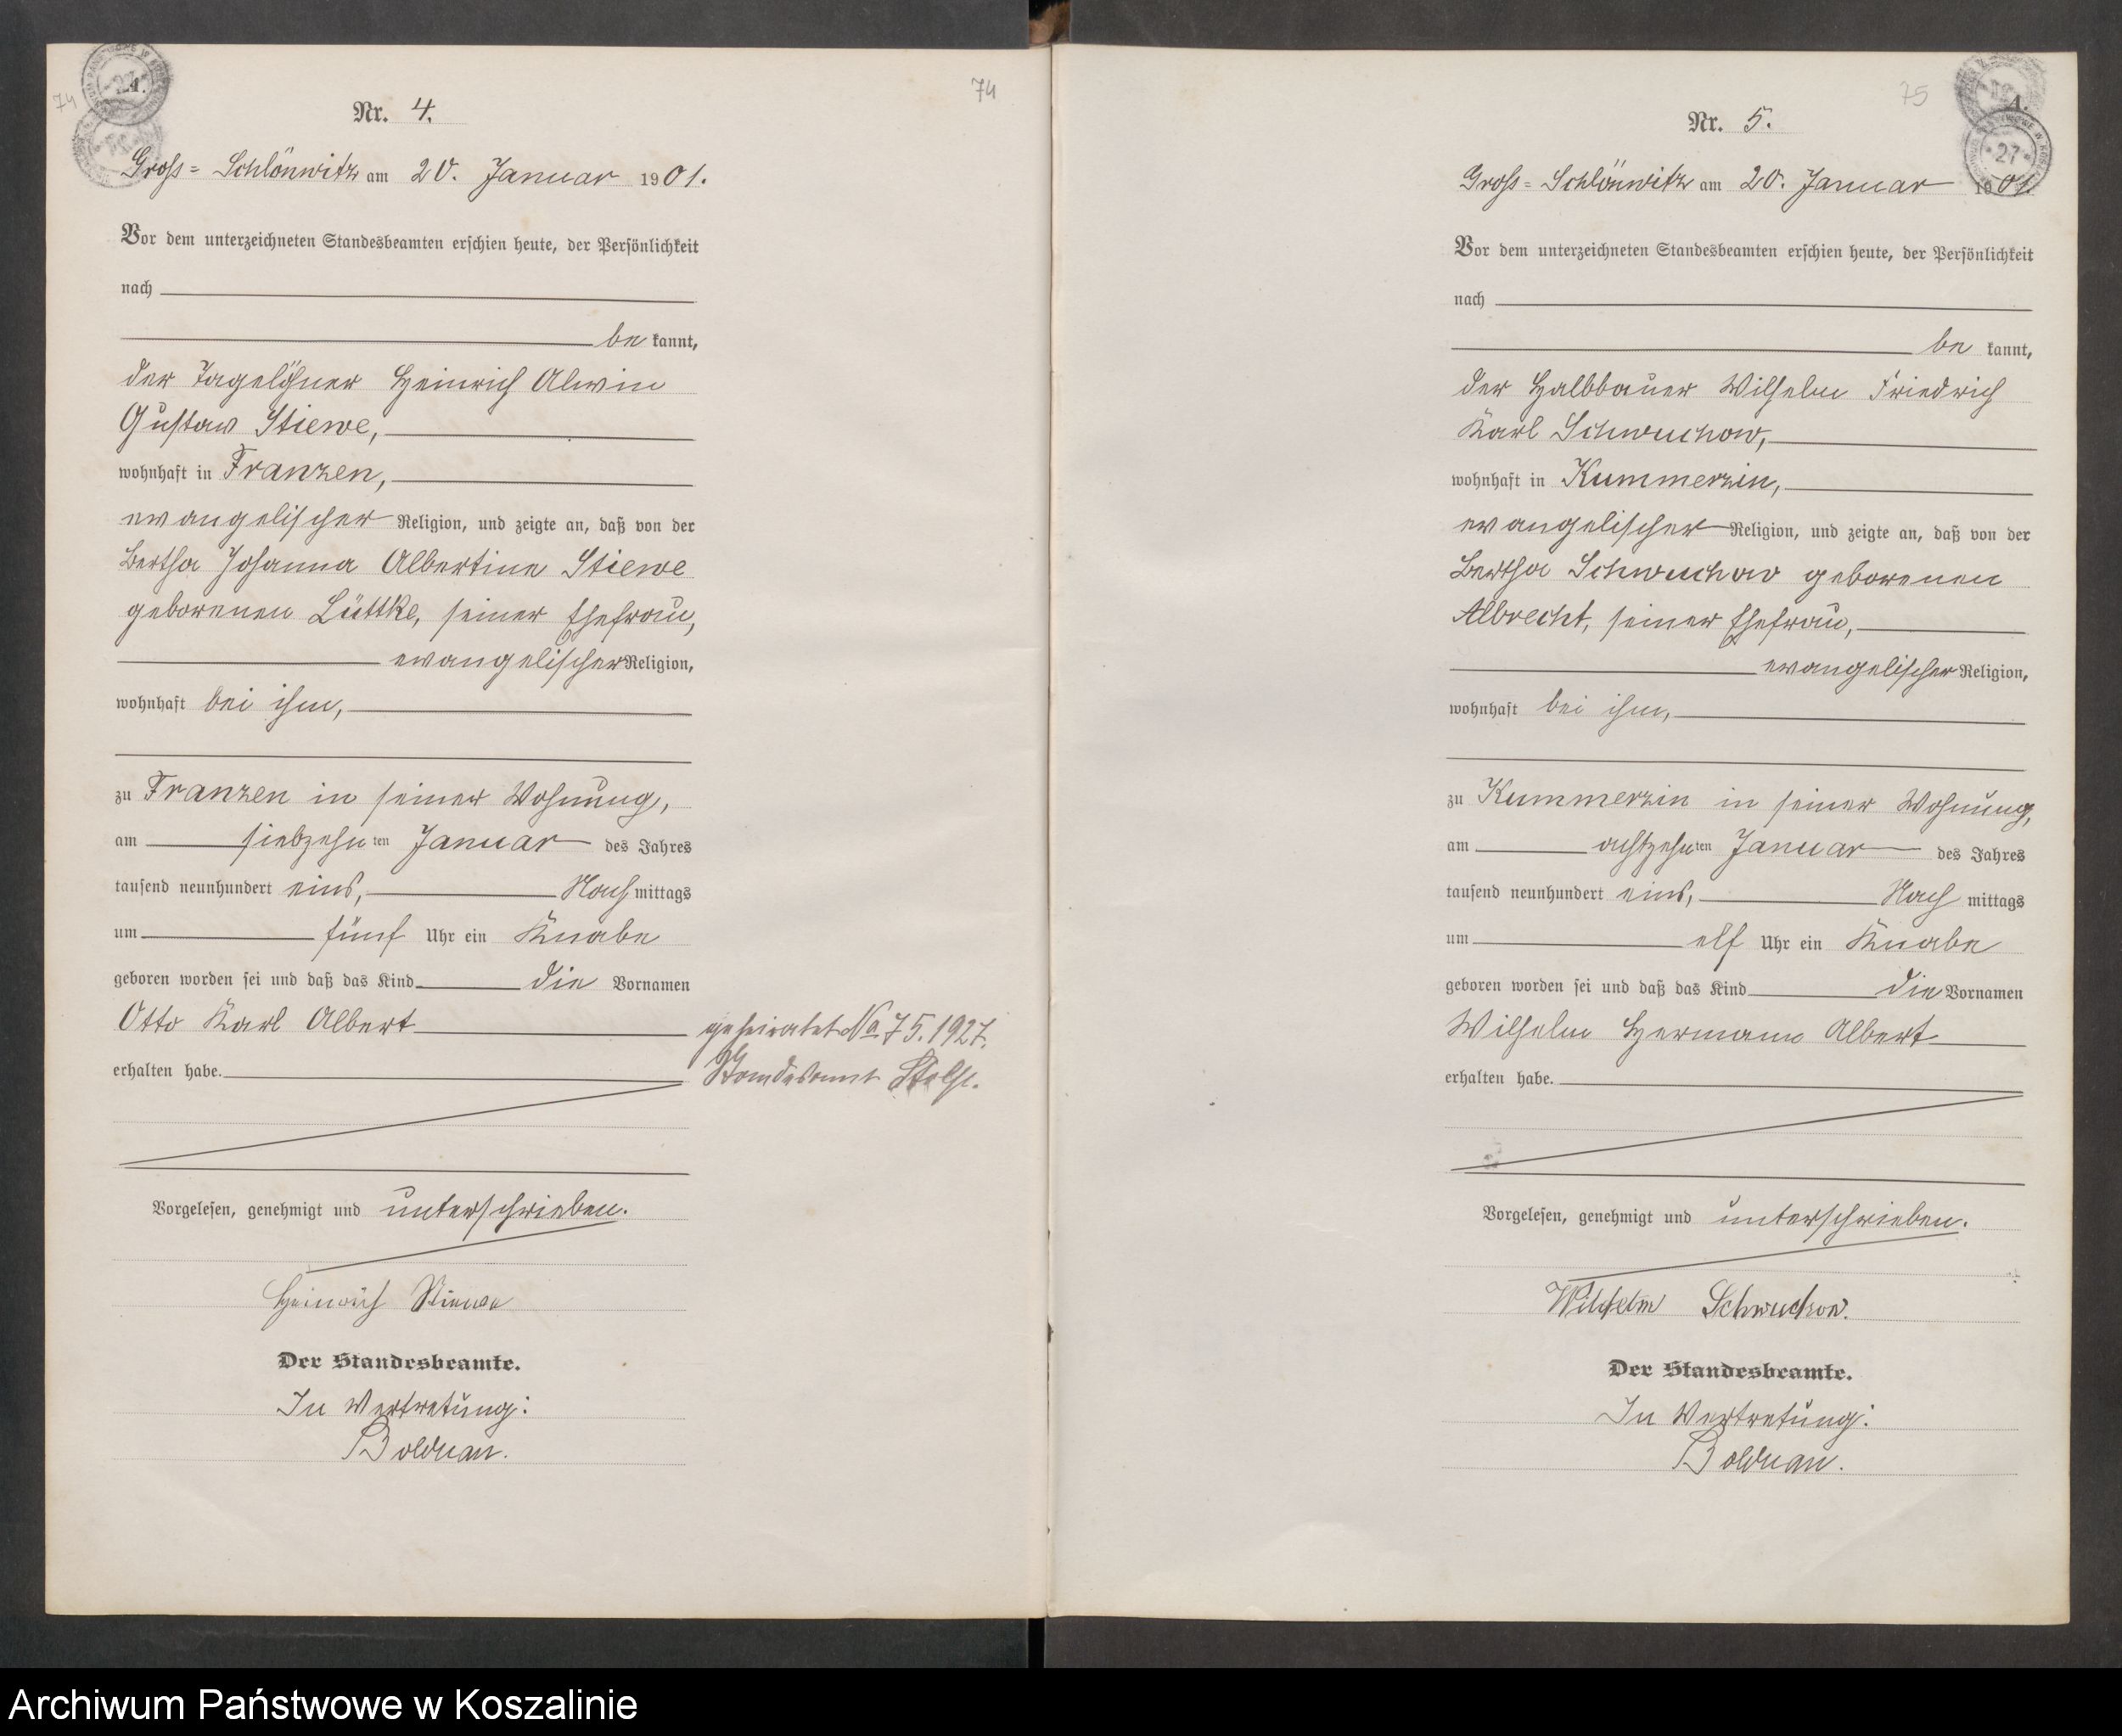 74
Nr. 4.
Gross=Schlönwitz am 20. Januar 1901.
Vor dem unterzeichneten Standesbeamten erschien heute, der Persönlichkeit
nach
be kannt,
der Tagelöhner Heinrich Alwin
Gustav Stiewe,
wohnhaft in Franzen,
evangelischer Religion, und zeigte an, daß von der
Bertha Johanna Albertine Stiewe
geborenen Lüttke, seiner Ehefrau,
evangelischer Religion,
wohnhaft bei ihm,
zu Franzen in seiner Wohnung,
am siebzehnten Januar des Jahres
tausend neunhundert eins, Nachmittags
um fünf Uhr ein Knabe
geboren worden sei und daß das Kind die Vornamen
Otto Karl Albert
erhalten habe.
geheiratet No 75. 1927.
Standesamt Stolp.
Vorgelesen, genehmigt und unterschrieben.
Heinrich Stiewe
Der Standesbeamte.
In Vertretung:
Bolduan.
74
75
A.
27
Nr. 5.
Gross=Schlönwitz am 20. Januar 1901.
Vor dem unterzeichneten Standesbeamten erschien heute, der Persönlichkeit
nach
be kannt,
der Halbbauer Wilhelm Friedrich
Karl Schwuchow,
wohnhaft in Kummerzin,
evangelischer Religion, und zeigte an, daß von der
Bertha Schwuchow geborenen
Albrecht, seiner Ehefrau,
evangelischer Religion,
wohnhaft bei ihm,
zu Kummerzin in seiner Wohnung,
am achtzehnten Januar des Jahres
tausend neunhundert eins, Nach mittags
um elf Uhr ein Knabe
geboren worden sei und daß das Kind die Vornamen
Wilhelm Hermann Albert
erhalten habe.
Vorgelesen, genehmigt und unterschrieben.
Wilhelm Schwuchow.
Der Standesbeamte.
In Vertretung:
Bolduan.
Archiwum Państwowe w Koszalinie